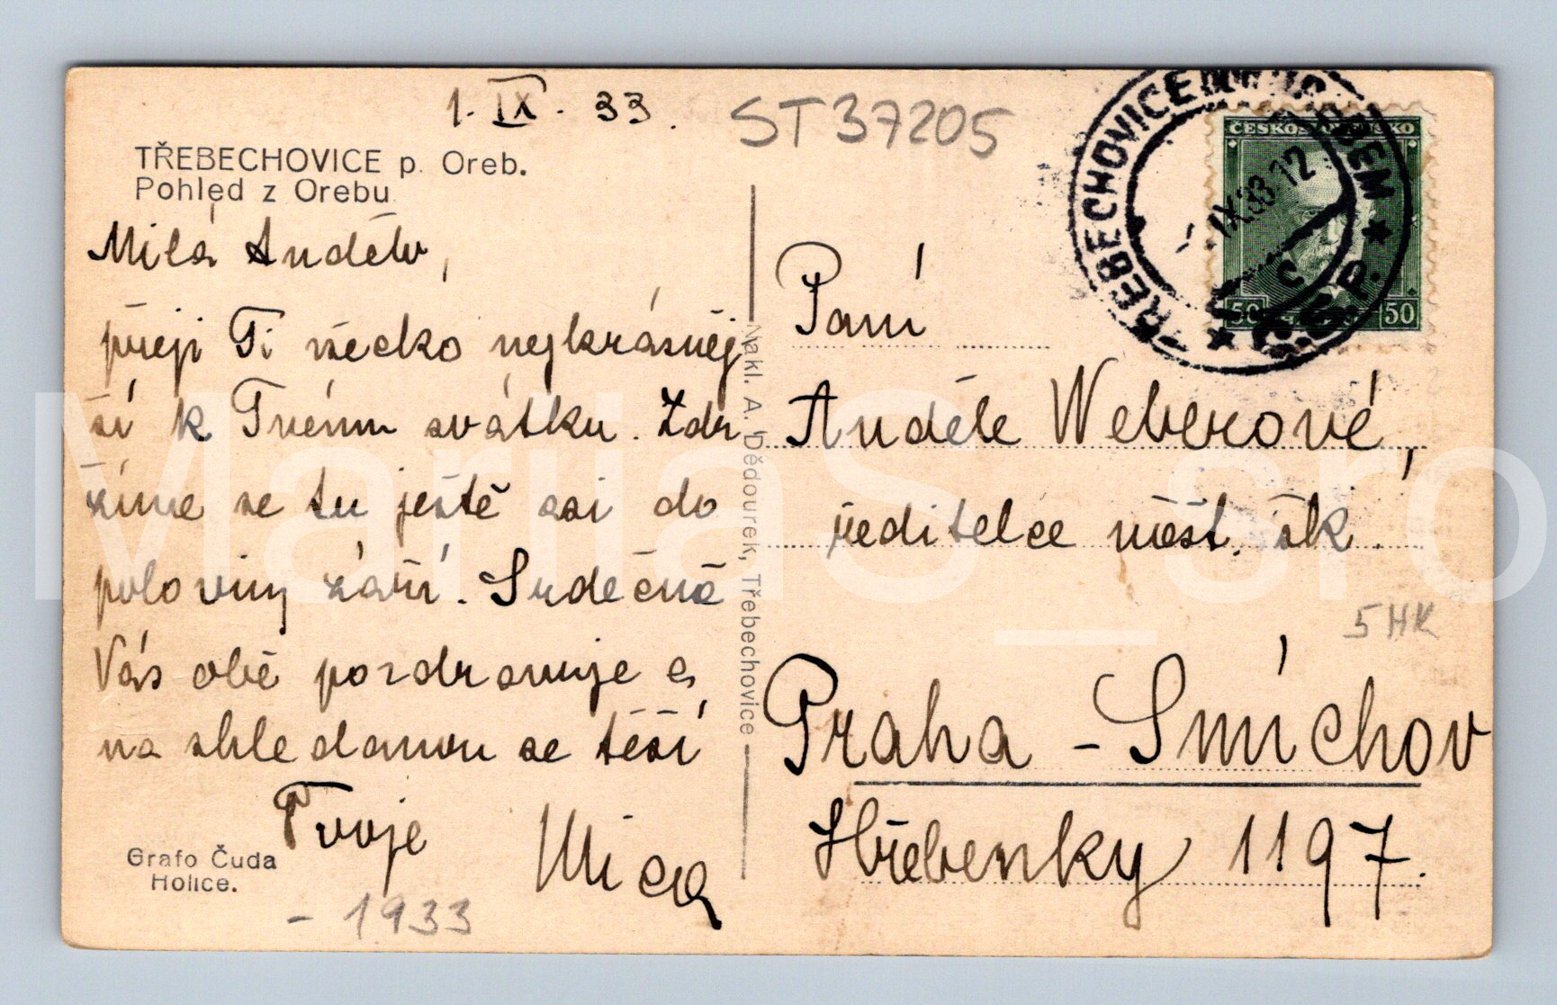 1. IX. 33.
ST37205
TŘEBECHOVICE p. Oreb.
Pohled z Orebu
Milá Anděl,
přeji Ti všecko nejkrásněj
ší k Tvému svátku. Zdr
žíme se tu ještě asi do
poloviny září. Srdečně
Vás obě pozdravuje a
na shledanou se těší
Tvoje
Mica
Grafo Čuda
Holice.
- 1933
Nakl. A. Dědourek, Třebechovice
TŘEBECHOVICE POD OREBEM
IX.33 12
Č.S.P.
c
ČESKOSLOVENSKO
50 50
Paní
Anděle Weberové,
ředitelce měšt. šk.
5 HK
Praha - Smíchov
Hřebenky 1197.
MarijaS_sro